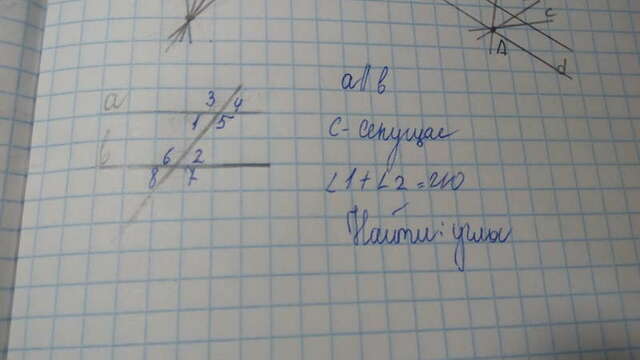 A
c
d
a
3 4
1 5
b
6 2
8 7
a || b
C - секущая
∠1 + ∠2 = 210
Найти: углы